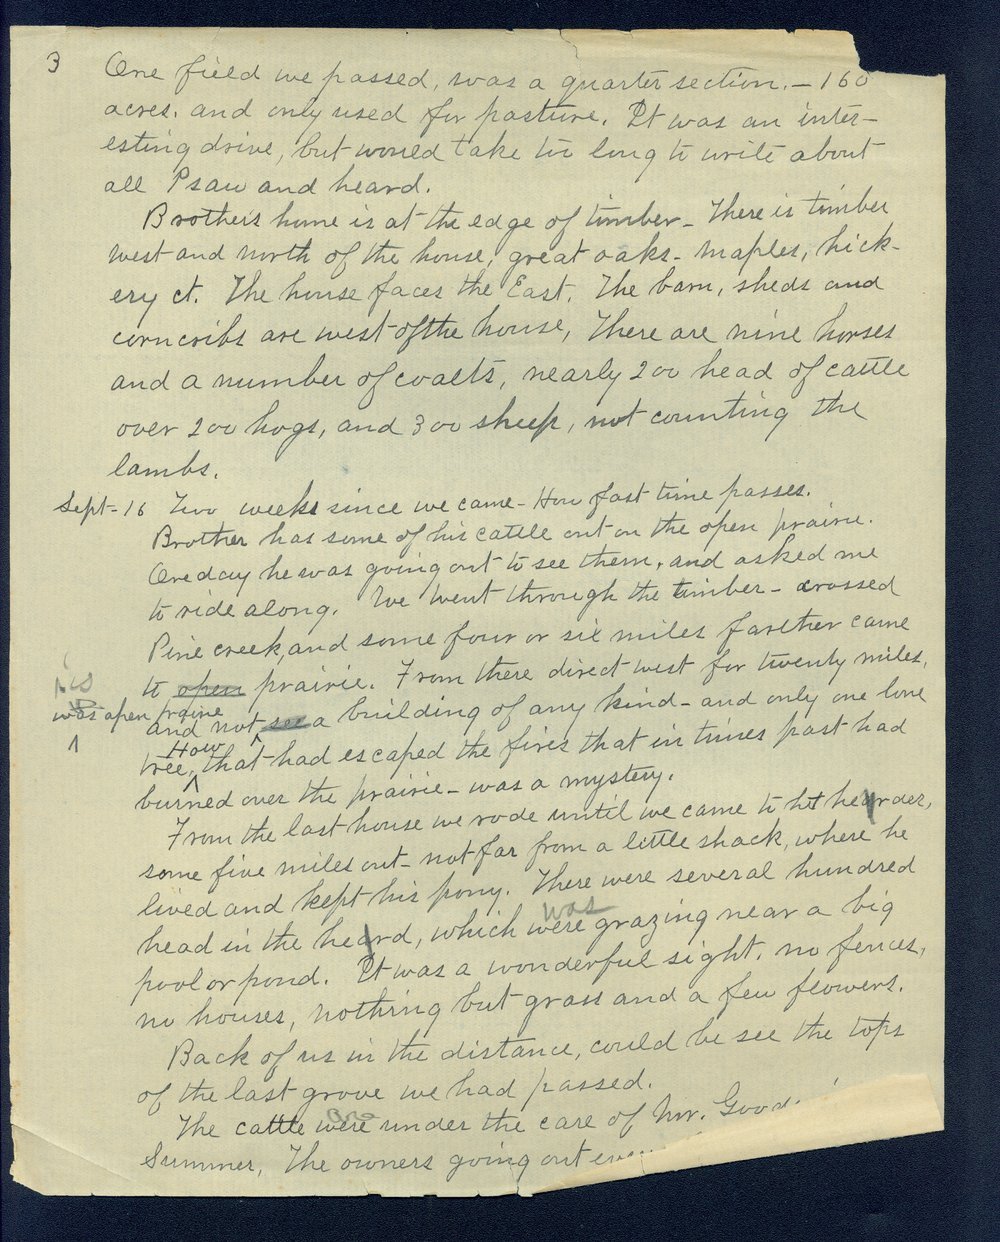 3
One field we passed, was a quarter section. – 160
acres. and only used for pasture. It was an inter-
esting drive, but would take too long to write about
all I saw and heard.
Brother's home is at the edge of timber – There is timber
west and north of the house, great oaks – maples, hick-
ery ct. The house faces the East. The barn, sheds and
corncribs are west of the house, There are nine horses
and a number of coalts, nearly 200 head of cattle
over 200 hogs, and 300 sheep, not counting the
lambs.
Sept – 16 Two weeks since we came – How fast time passes.
Brother has some of his cattle out on the open prairie.
One day he was going out to see them, and asked me
to ride along. We went through the timber – crossed
Pine creek, and some four or six miles farther came
to open prairie. From there direct west for twenty miles,
was open prairie
and not see a building of any kind – and only one lone
tree, How that had escaped the fires that in times past had
burned over the prairie – was a mystery.
From the last house we rode until we came to ht hearder,
some five miles out – not far from a little shack, where he
lived and kept his pony. There were several hundred
was
head in the heard, which were grazing near a big
pool or pond. It was a wonderful sight. no fences,
no houses, nothing but grass and a few flowers.
Back of us in the distance, could be see the tops
of the last grove we had passed.
The cattle were under the care of Mr.
Summer, The owners going out